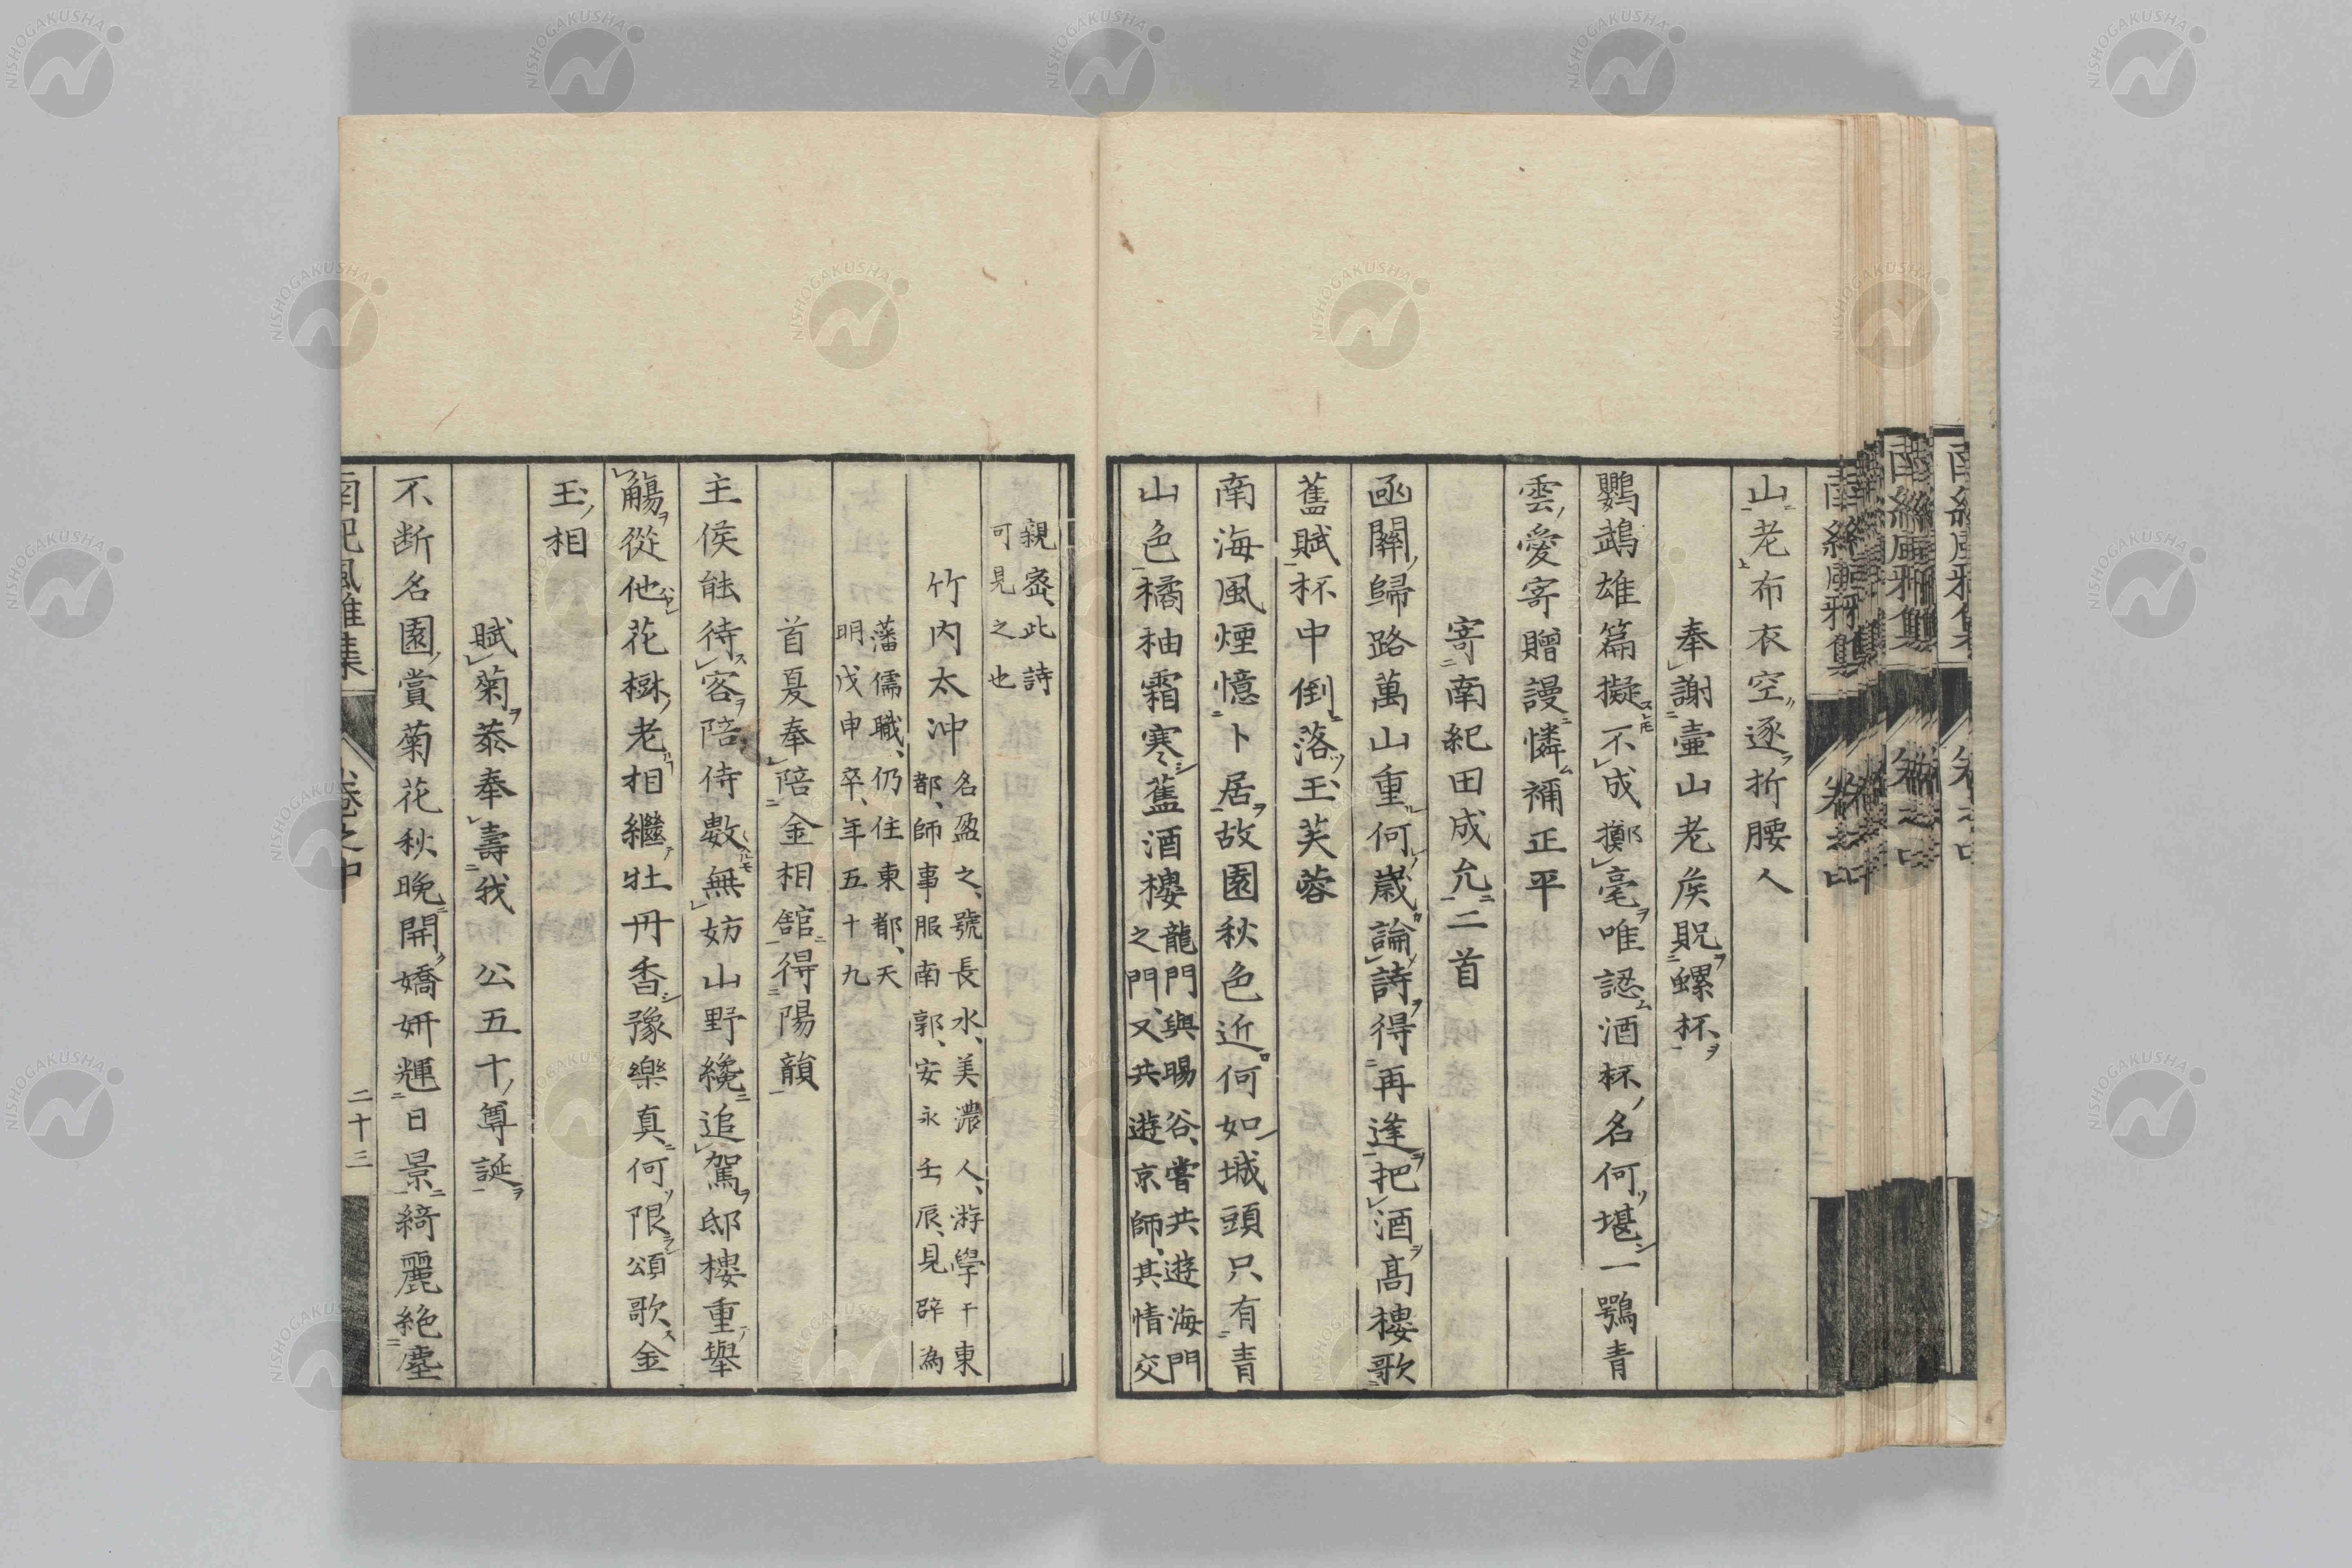 山老布衣空逐折腰人
奉謝壷山老矦貺螺杯
鸚鵡雄篇擬不成擲毫唯認酒杯名何堪一鶚青
雲愛寄贈謾憐禰正平
寄南紀田成允二首
函關歸路萬山重何歳論詩得再逢把酒髙樓歌
舊賦杯中倒落玉芙蓉
南海風煙憶卜居故園秋色近何如城頭只有青
山色橘柚霜寒舊酒樓
龍門與暘谷嘗共遊海門
之門又共遊京師其情交
親宻此詩
可見之也
竹内太冲
名盈之號長水美濃人游學于東
都師事服南郭安永壬辰見辟為
藩儒職仍住東都天
明戊申卒年五十九
首夏奉陪金相舘得陽韻
主侯能待客陪侍數無妨山野纔追駕邸樓重舉
觴從他花樹老相繼牡丹香豫樂真何限頌歌金
玉相
賦菊菾奉壽我 公五十尊誕
不断名園賞菊花秋晩開嬌妍輝日景綺麗絶塵
南紀風雅集 卷之中 二十三
NISHOGAKUSHA